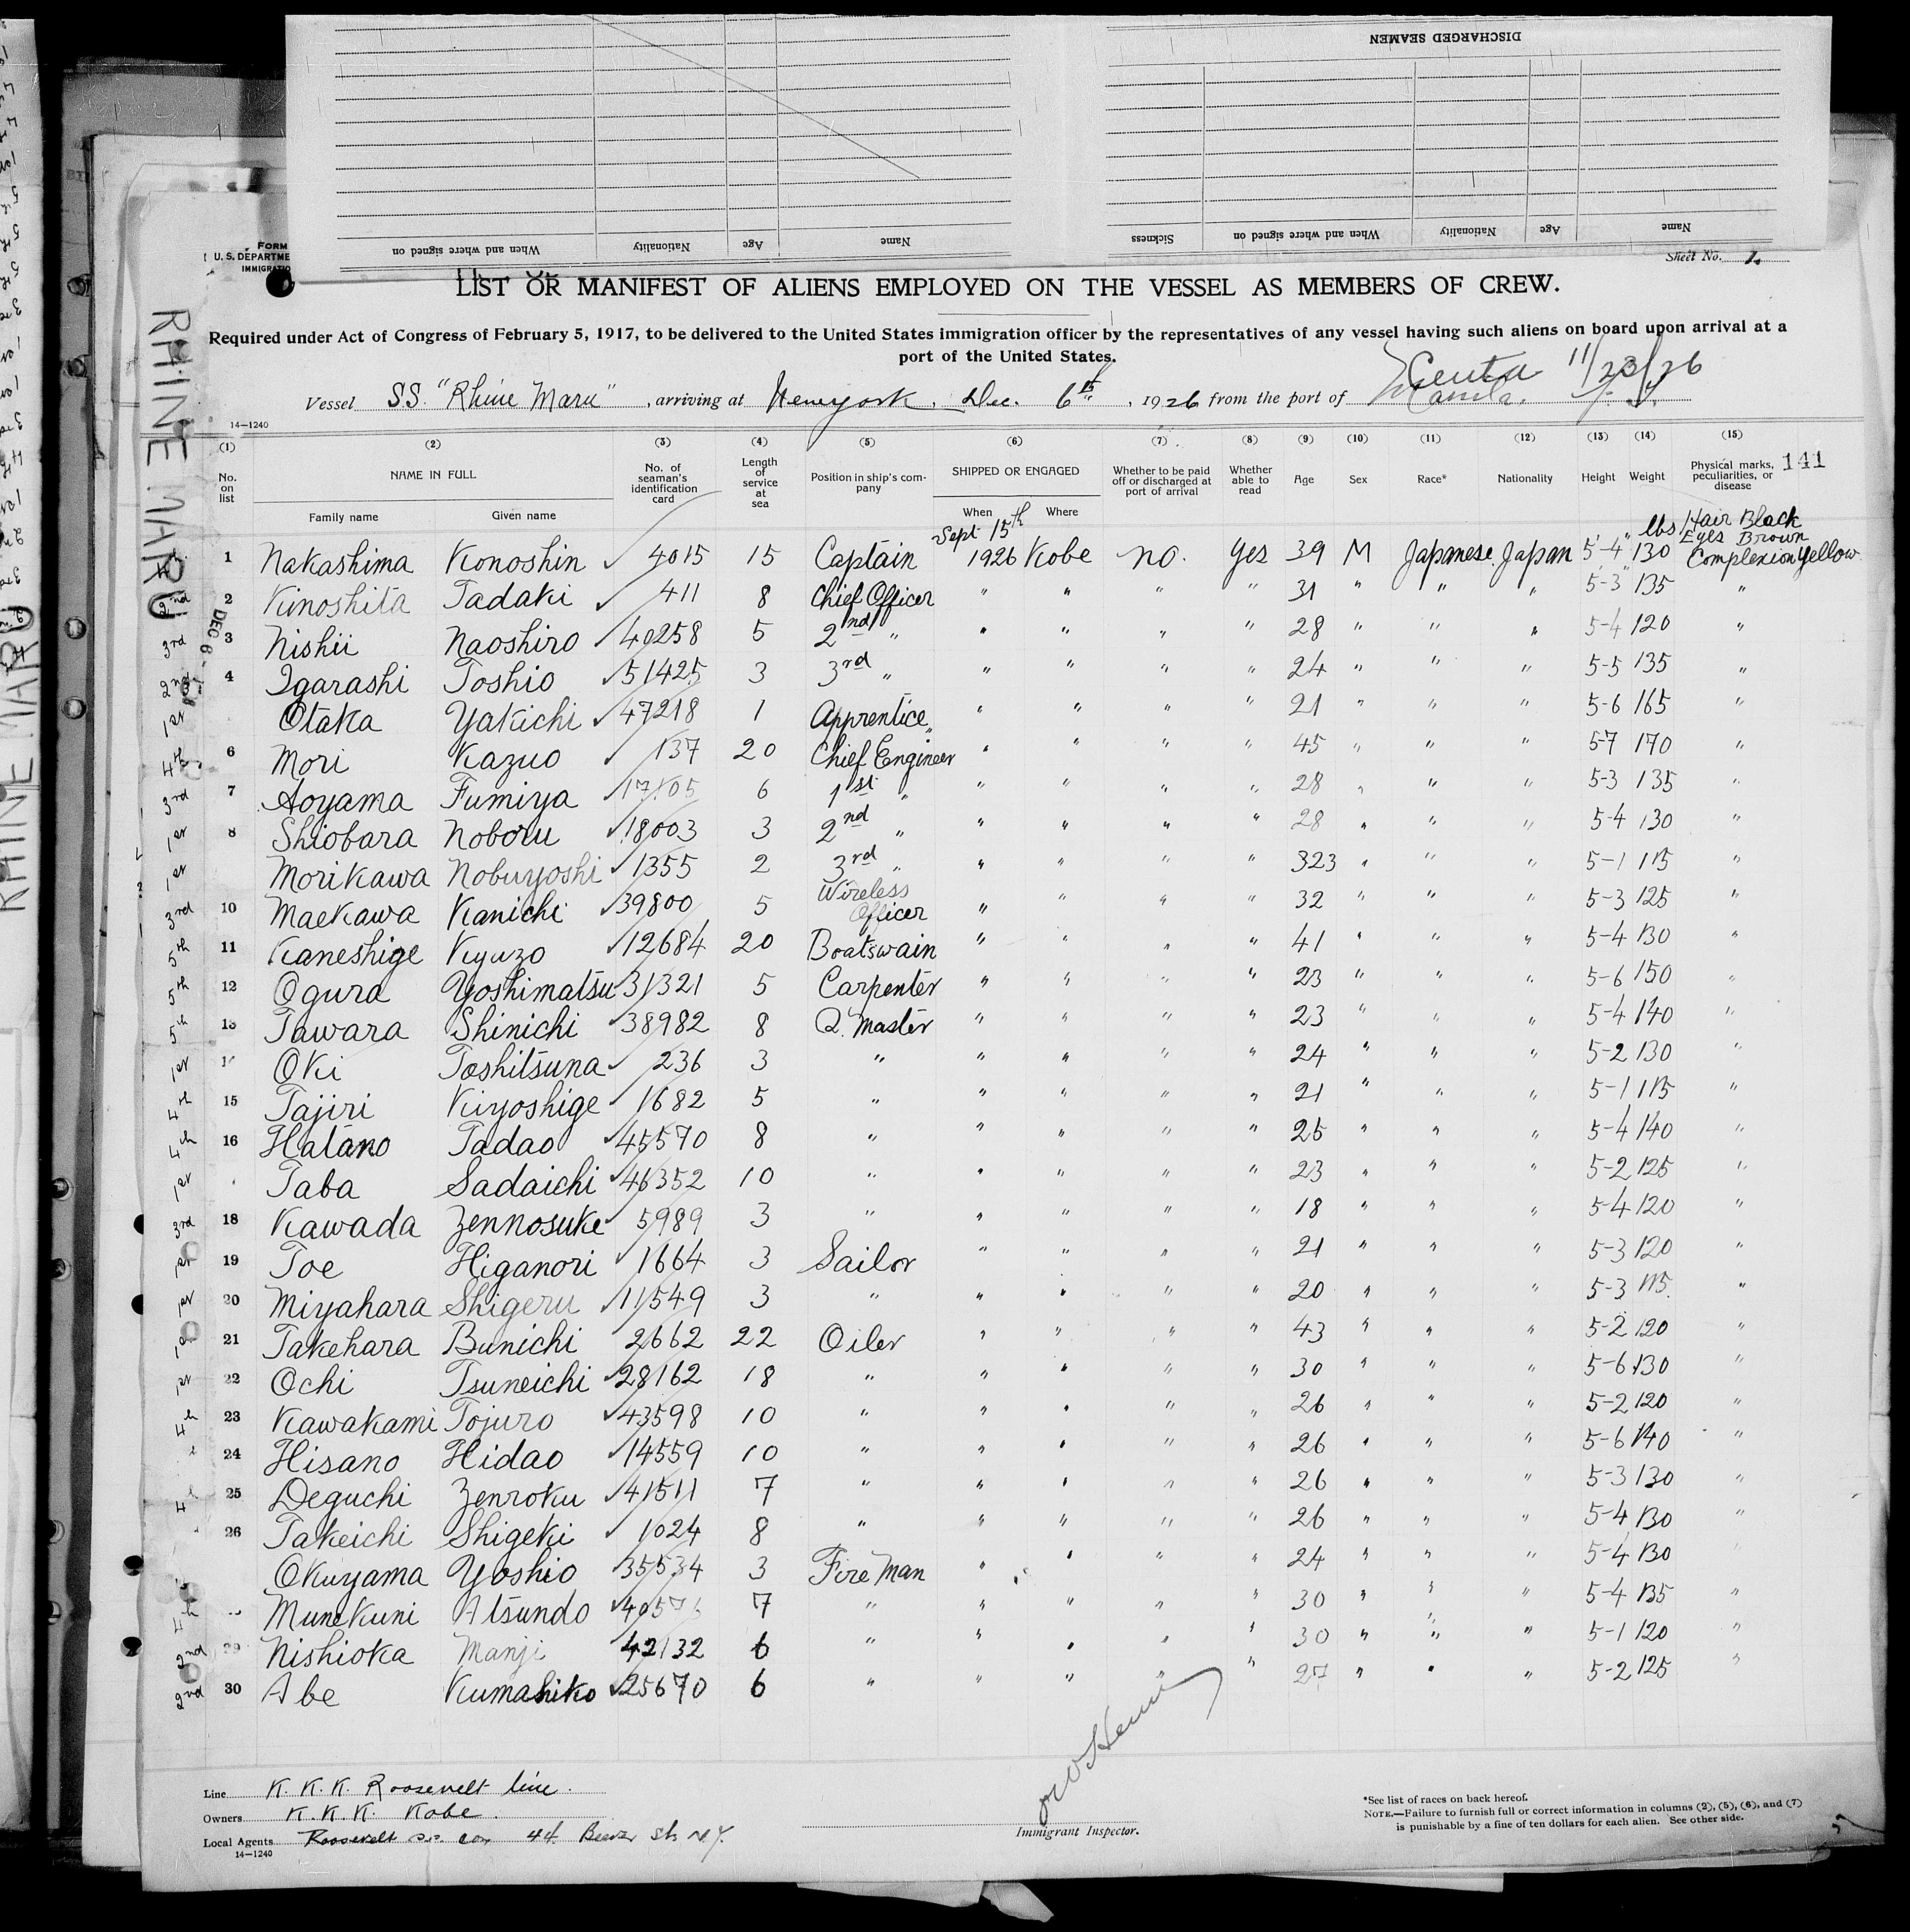 DISCHARGED SEAMEN
When and where signed on Nationality Age Name Sickness When and where signed on Nationality Age Name
FORM
U. S. DEPARTME
IMMIGRATIO
Sheet No. 1.
LIST OR MANIFEST OF ALIENS EMPLOYED ON THE VESSEL AS MEMBERS OF CREW.
Required under Act of Congress of February 5, 1917, to be delivered to the United States immigration officer by the representatives of any vessel having such aliens on board upon arrival at a
port of the United States.
Vessel S.S. "Rhine Maru", arriving at Newyork, Dec. 6th, 1926 from the port of Manila. Ceuta 11/23/26
14—1240
RHINE MARU
DEC 6
(1) (2) (3) (4) (5) (6) (7) (8) (9) (10) (11) (12) (13) (14) (15)
No. on list NAME IN FULL No. of seaman's identification card Length of service at sea Position in ship's company SHIPPED OR ENGAGED Whether to be paid off or discharged at port of arrival Whether able to read Age Sex Race* Nationality Height Weight Physical marks, peculiarities, or disease 141
Family name Given name When Where
Sept 15th lbs Hair Black
Eyes Brown
1 Nakashima Konoshin ✓ 4015 15 Captain 1926 Kobe no. yes 39 M Japanese Japan 5'-4" 130 Complexion yellow
2nd 2 Kinoshita Tadaki ✓ 411 8 Chief Officer " " " " 31 " " " 5-3 135 "
3rd 3 Nishii Naoshiro ✓ 40258 5 2nd " " " " " 28 " " " 5-4 120 "
2nd 4 Igarashi Toshio ✓ 51425 3 3rd " " " " " 24 " " " 5-5 135 "
1st Otaka Yakichi ✓ 47218 1 Apprentice " " " " " 21 " " " 5-6 165 "
4th 6 Mori Kazuo ✓ 137 20 Chief Engineer " " " " 45 " " " 5-7 170 "
3rd 7 Aoyama Fumiya ✓ 17105 6 1st " " " " " 28 " " " 5-3 135 "
1st 8 Shiobara Noboru ✓ 18003 3 2nd " " " " " 28 " " " 5-4 130 "
1st Morikawa Nobuyoshi ✓ 1355 2 3rd " " " " " 323 " " " 5-1 115 "
Wireless
3rd 10 Maekawa Kanichi ✓ 39800 5 Officer " " " " 32 " " " 5-3 125 "
5th 11 Kaneshige Kyuzo ✓ 12684 20 Boatswain " " " " 41 " " " 5-4 130 "
5th 12 Ogura Yoshimatsu 31321 5 Carpenter " " " " 23 " " " 5-6 150 "
5th 13 Tawara Shinichi ✓ 38982 8 Q. Master " " " " 23 " " " 5-4 140 "
1st 14 Oki Toshitsuna ✓ 236 3 " " " " " 24 " " " 5-2 130 "
4th 15 Tajiri Kiyoshige ✓ 1682 5 " " " " " 21 " " " 5-1 115 "
4th 16 Hatano Tadao ✓ 45570 8 " " " " " 25 " " " 5-4 140 "
1st Taba Sadaichi ✓ 46352 10 " " " " " 23 " " " 5-2 125 "
3rd 18 Kawada Zennosuke ✓ 5989 3 " " " " " 18 " " " 5-4 120 "
1st 19 Toe Higanori ✓ 1664 3 Sailor " " " " 21 " " " 5-3 120 "
1st 20 Miyahara Shigeru ✓ 11549 3 " " " " " 20 " " " 5-3 115. "
1st 21 Takehara Bunichi 2662 22 Oiler " " " " 43 " " " 5-2 120 "
1st 22 Ochi Tsuneichi ✓ 28162 18 " " " " " 30 " " " 5-6 130 "
4th 23 Kawakami Tojuro ✓ 43598 10 " " " " " 26 " " " 5-2 120 "
24 Hisano Hidao ✓ 14559 10 " " " " " 26 " " " 5-6 140 "
25 Deguchi Zenroku ✓ 41511 7 " " " " " 26 " " " 5-3 130 "
26 Takeichi Shigeki ✓ 1024 8 " " " " " 26 " " " 5-4 130 "
Okuyama Yoshio ✓ 35534 3 Fire Man " " " " 24 " " " 5-4 130 "
4th Munekuni Atsundo ✓ 7 " " " " " 30 " " " 5-4 135 "
2nd 29 Nishioka Manji 42132 6 " " " " " 30 " " " 5-1 120 "
2nd 30 Abe Kumahiko ✓ 25670 6 " " " " " 27 " " " 5-2 125 "
Line K. K. K. Roosevelt line.
Owners K. K. K. Kobe.
Local Agents Roosevelt s.s. con 44 Beaver St. N.Y.
14—1240
Immigrant Inspector.
*See list of races on back hereof.
NOTE.—Failure to furnish full or correct information in columns (2), (5), (6), and (7)
is punishable by a fine of ten dollars for each alien. See other side.